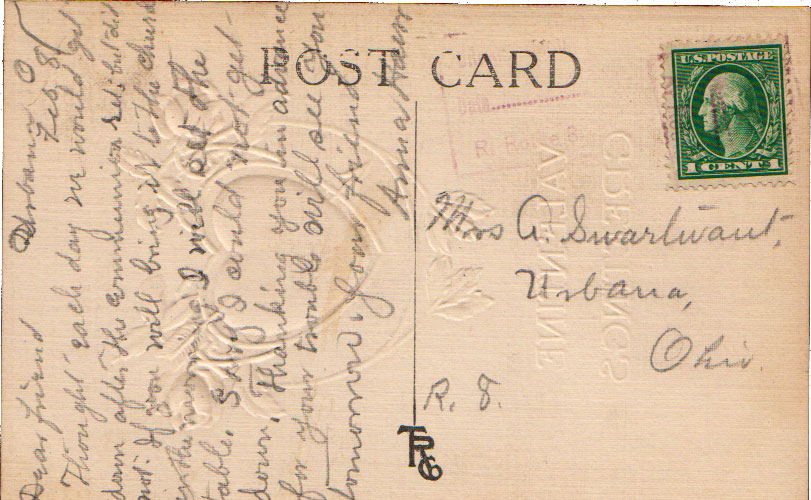 POST CARD
U.S. POSTAGE
1 CENTS 1
R. Route 3
VALENTINE
GREETINGS
Mrs A. Swartwout,
Urbana,
Ohio.
R. F.
TRG
Urbana O
Feb. 8
Dear friend
Thought each day we would get
down after the communion set, but did
not. If you will bring it to the church
in the morning I will set the
table. Sorry I could not get
down. Thanking you in advance
for your trouble. Will see you
tomorrow. Your friend
Anna